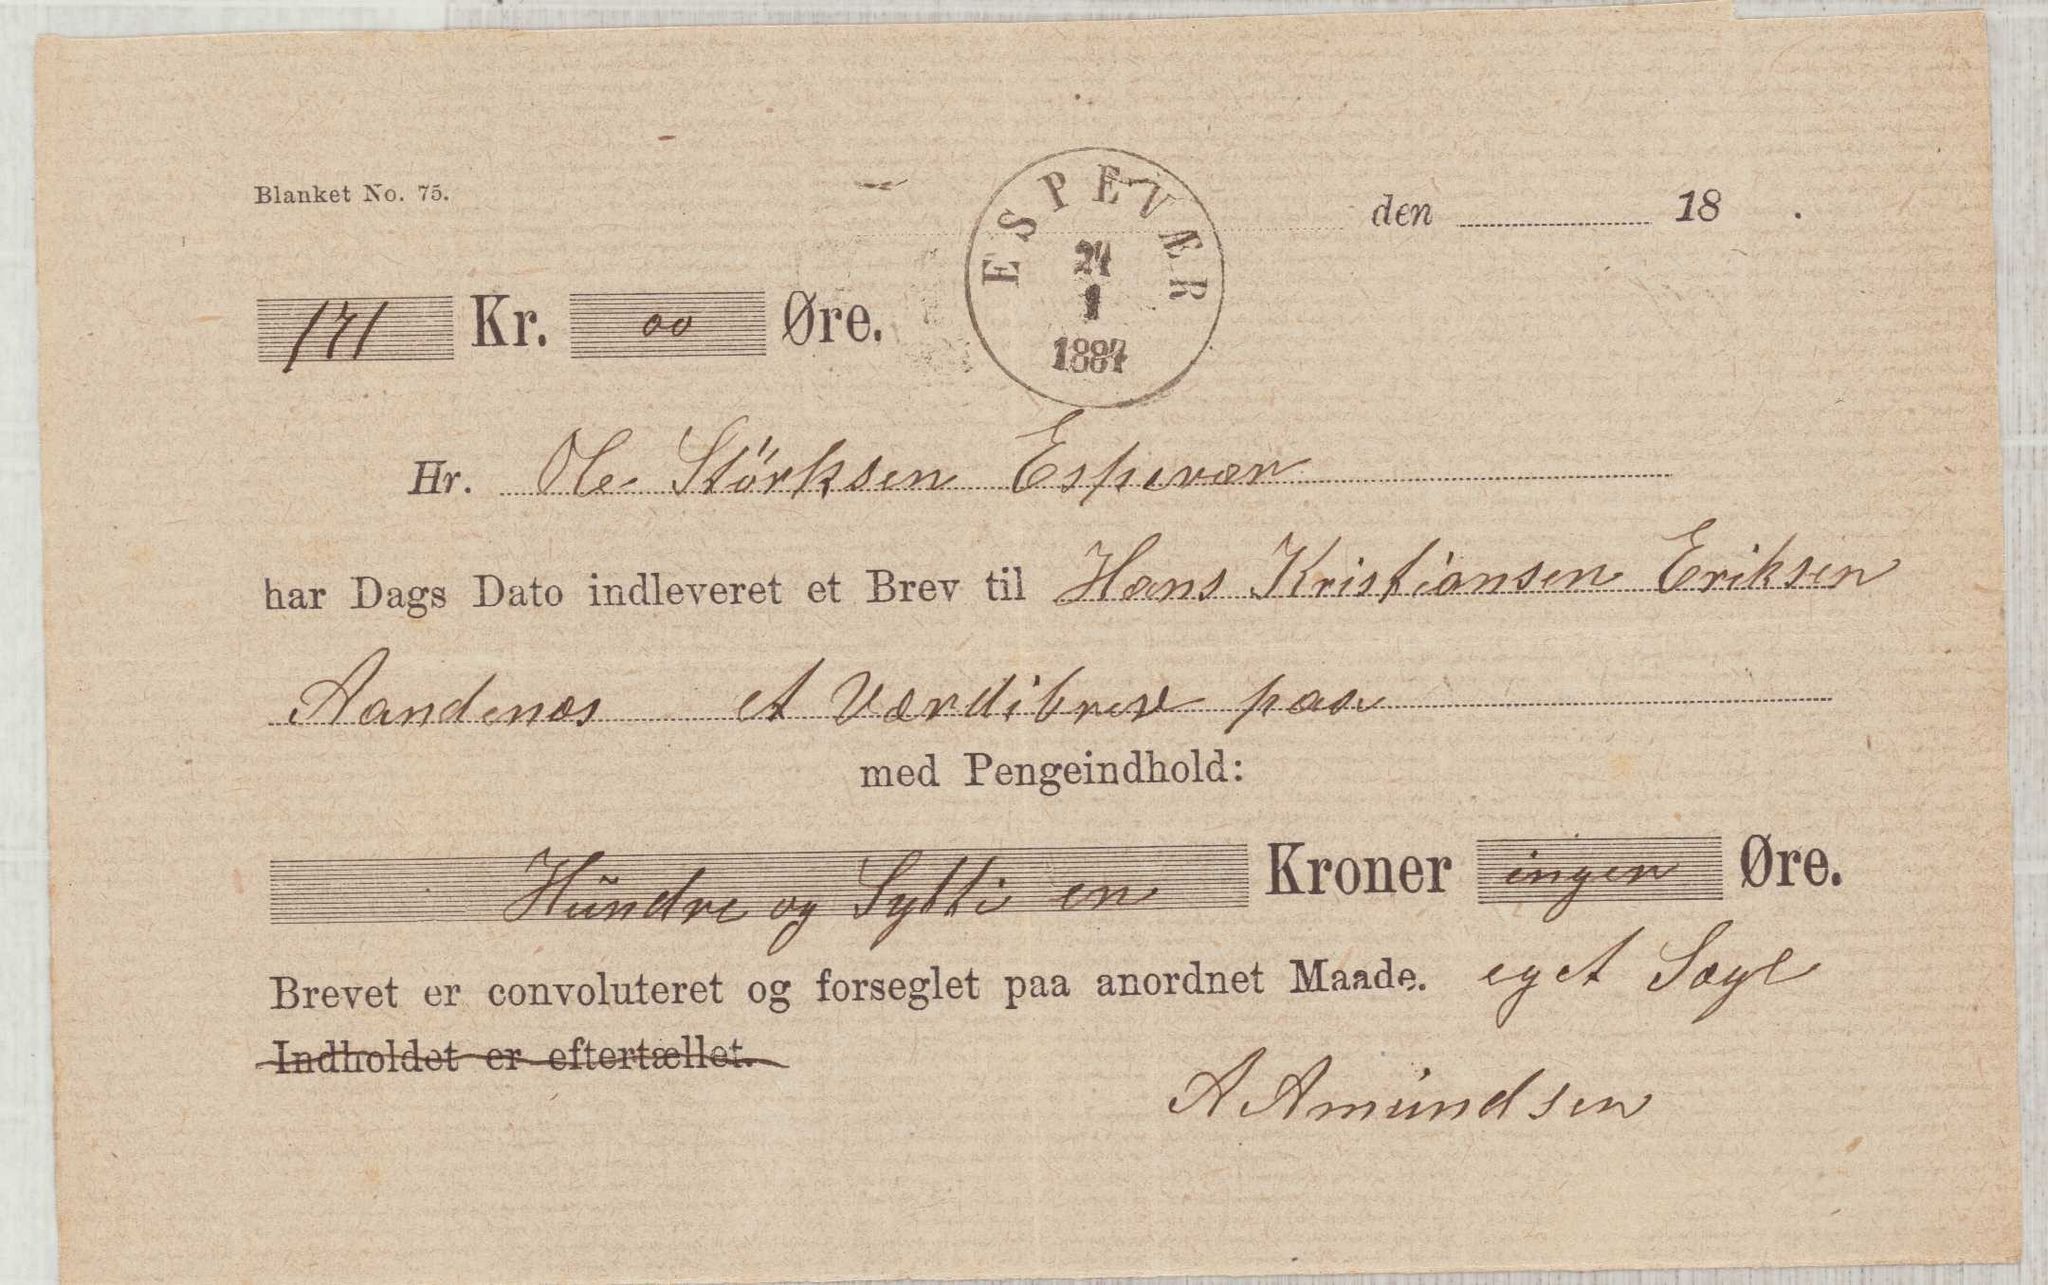 Blanket No. 75.
ESPEVÆR
24
1
1887
den 18 .
171 Kr. 00 Øre.
Hr. Ole Störksen Espevær
har Dags Dato indleveret et Brev til Hans Kristiansen Eriksen
Aandenæs et Værdibrev paa
med Pengeindhold:
Hŭndre og Sytti en Kroner ingen Øre.
Brevet er convoluteret og forseglet paa anordnet Maade. eget Sægl
Indholdet er eftertællet.
A Amŭndsen